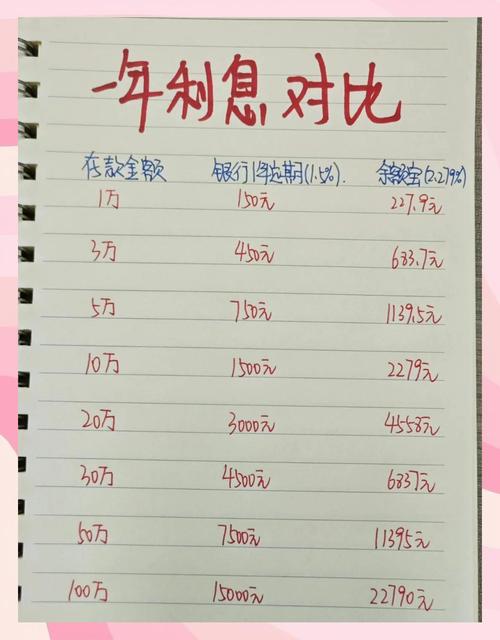 一年利息对比
存款金额 银行1年定期(1.5%). 余额宝(2.279%)
1万 150元 227.9元
3万 450元 683.7元
5万 750元 1139.5元
10万 1500元 2279元
20万 3000元 4558元
30万 4500元 6837元
50万 7500元 11395元
100万 15000元 22790元